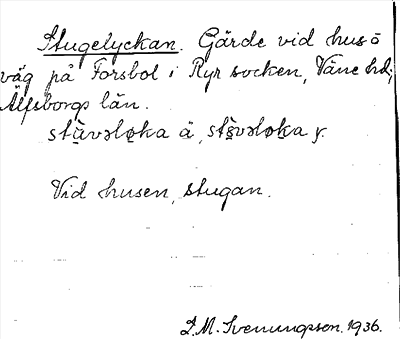 Stugelyckan. Gärde vid hus o
väg på Forsbol i Ryr socken, Väne hd;
Älfsborgs län.
Vid husen, stugan.
S. M. Svenungsson. 1936.